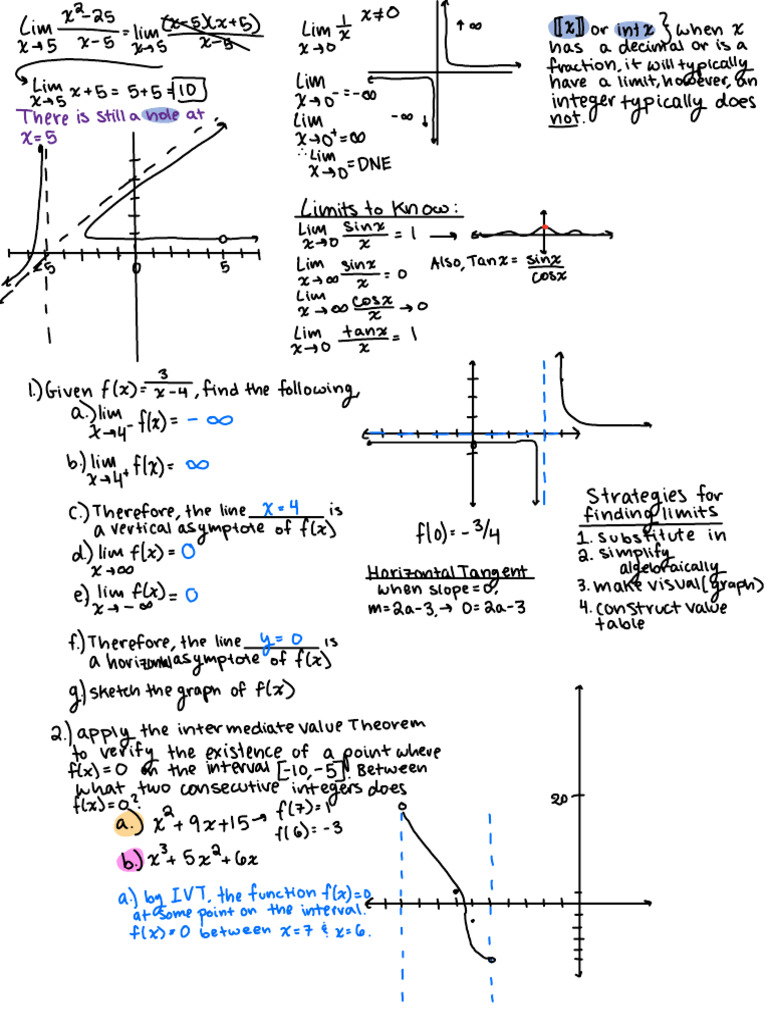 Lim x→5 x²-25 / x-5 = lim x→5 (x-5)(x+5) / x-5
Lim x→5 x+5 = 5+5 = 10
There is still a hole at
x=5
-5 0 5
Lim x→0 1/x x≠0
Lim x→0⁻ = -∞
Lim x→0⁺ = ∞
∴ Lim x→0 = DNE
↑ ∞
-∞ ↓
⟦x⟧ or int x } when x
has a decimal or is a
fraction, it will typically
have a limit, however, an
integer typically does
not.
Limits to Know:
Lim x→0 sinx/x = 1 →
Lim x→∞ sinx/x = 0 Also, Tanx = sinx/cosx
Lim x→∞ cosx/x → 0
Lim x→0 tanx/x = 1
1.) Given f(x) = 3/x-4, find the following,
a.) lim x→4⁻ f(x) = - ∞
b.) lim x→4⁺ f(x) = ∞
c.) Therefore, the line x=4 is
a vertical asymptote of f(x)
d.) lim x→∞ f(x) = 0
e.) lim x→-∞ f(x) = 0
f.) Therefore, the line y=0 is
a horizontal asymptote of f(x)
g.) sketch the graph of f(x)
f(0) = -3/4
Horizontal Tangent
when slope=0,
m=2a-3, → 0=2a-3
Strategies for
finding limits
1. substitute in
2. simplify
algebraically
3. make visual (graph)
4. construct value
table
2.) apply the intermediate value Theorem
to verify the existence of a point where
f(x)=0 on the interval [-10,-5]. Between
what two consecutive integers does
f(x)=0?
a.) x²+9x+15 → f(7)=1
f(6)=-3
b.) x³+5x²+6x
a.) by IVT, the function f(x)=0
at some point on the interval.
f(x)=0 between x=7 & x=6.
20